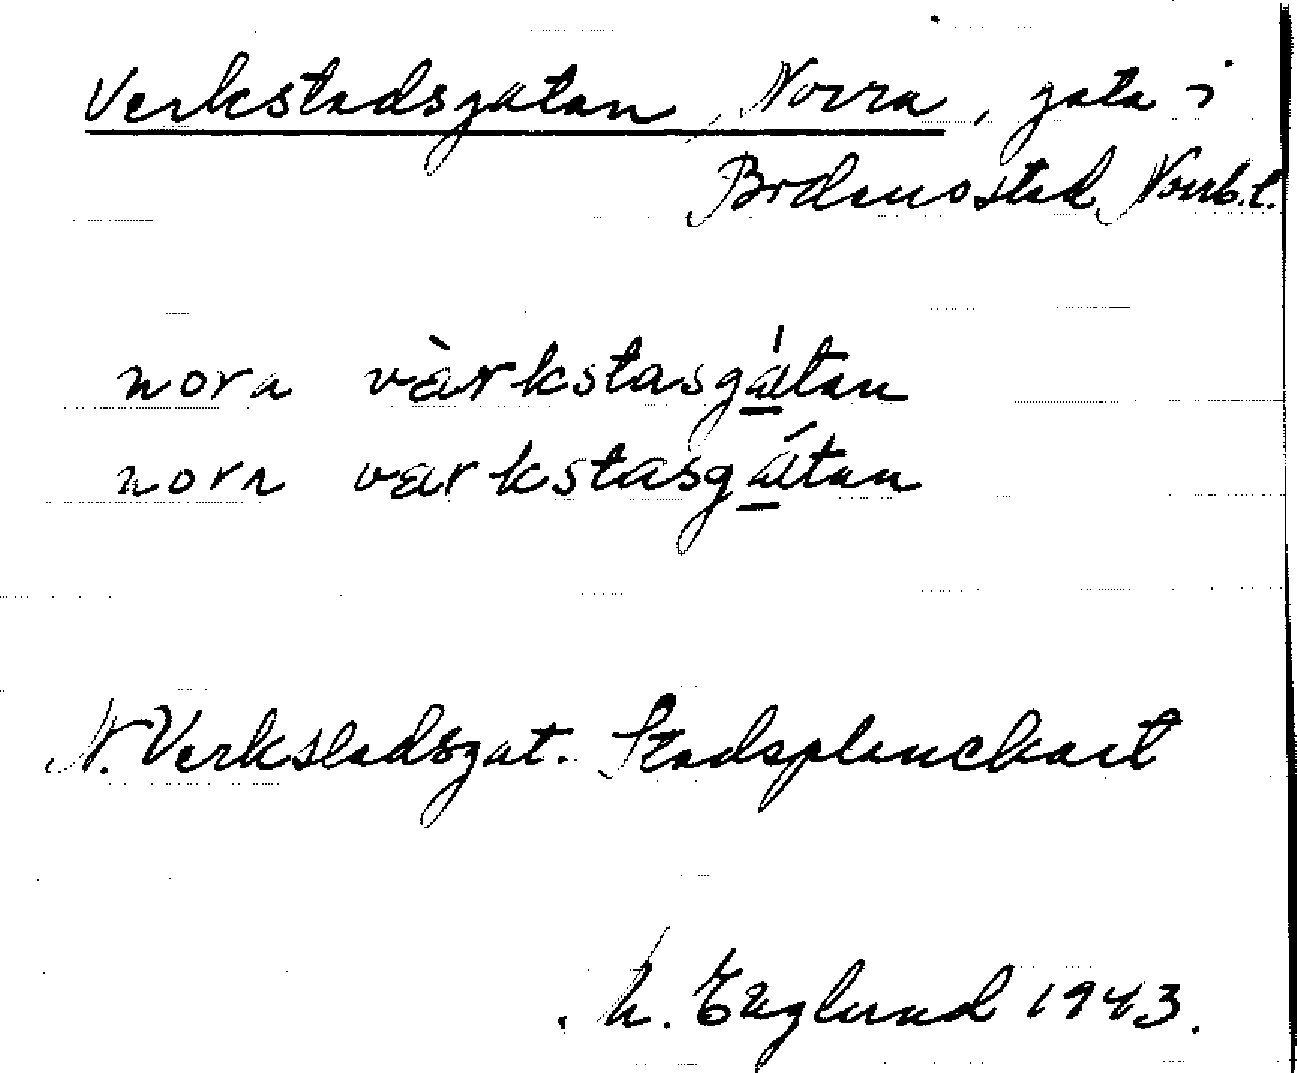 Verkstadsgatan, Norra, gata i
Bodens stad, Norrb.l.
nora værkstasgátan
nora værkstasgátan
N. Verkstadsgat. Stadsplanekart
Englund 1943.